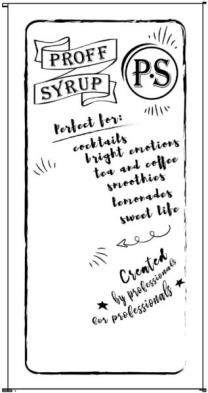 PROFF
SYRUP
P.S
Perfect for:
cocktails
bright emotions
tea and coffee
smoothies
lemonades
sweet life
Created
by professionals
for professionals